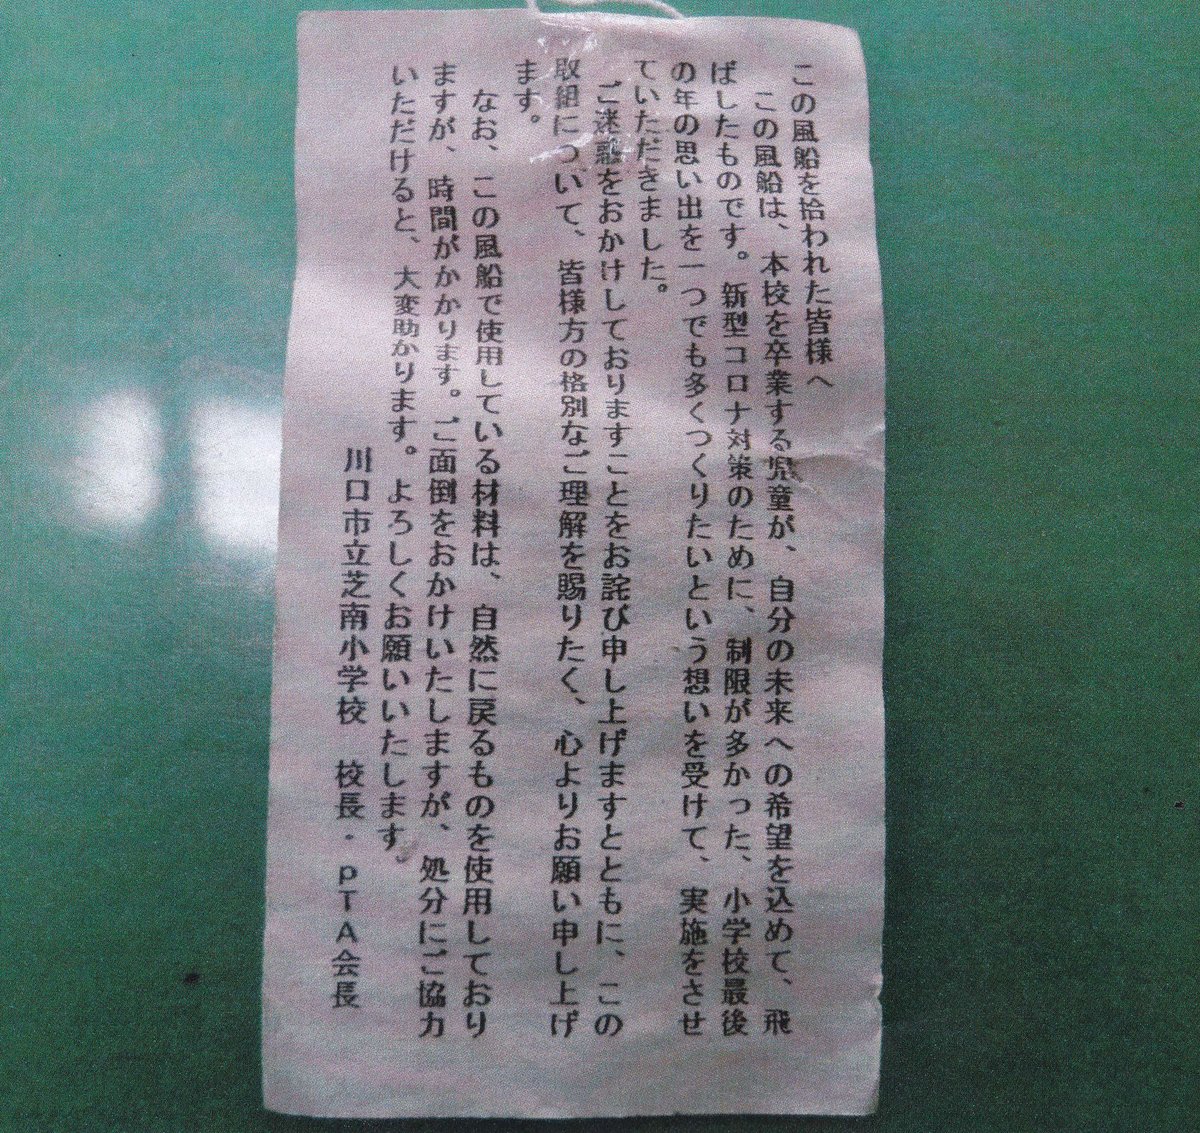 この風船を拾われた皆様へ
この風船は、本校を卒業する児童が、自分の未来への希望を込めて、飛
ばしたものです。新型コロナ対策のために、制限が多かった、小学校最後
の年の思い出を一つでも多くつくりたいという想いを受けて、実施をさせ
ていただきました。
ご迷惑をおかけしておりますことをお詫び申し上げますとともに、この
取組について、皆様方の格別なご理解を賜りたく、心よりお願い申し上げ
ます。
なお、この風船で使用している材料は、自然に戻るものを使用しており
ますが、時間がかかります。ご面倒をおかけいたしますが、処分にご協力
いただけると、大変助かります。よろしくお願いいたします。
川口市立芝南小学校 校長・pTA会長